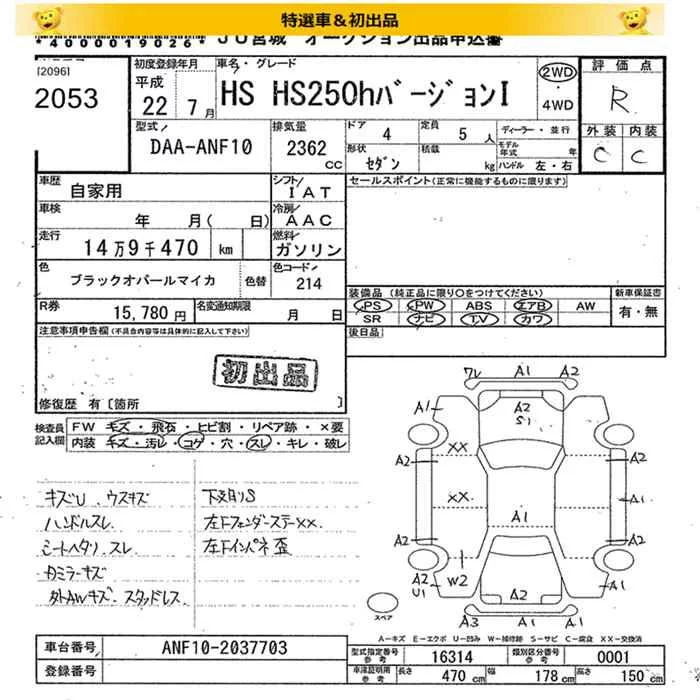 特選車＆初出品
*4000019026* JU宮城 オークション出品申込書
[2096]
2053
初度登録年月
平成
22 7月
車名・グレード
HS HS250hバージョンI
2WD
・
4WD
評価点
R
外装 内装
C C
型式
DAA-ANF10
排気量
2362
CC
ドア 4
定員 5 人
ディーラー・並行
形状
セダン
積載
kg
モデル年式 年
ハンドル 左・右
車歴
自家用
シフト
IAT
セールスポイント(正常に機能するものに限ります)
車検
年 月( 日)
冷房
AAC
走行
14万9千470 km
燃料
ガソリン
色
ブラックオパールマイカ
色替
色コード
214
R券
15,780円
名変通知期限
月 日
装備品 (純正品に限り○をつけてください)
PS PW ABS エアB AW
SR ナビ TV カワ
新車保証書
有・無
後日品
注意事項申告欄(不具合内容等は具体的に記入して下さい)
初出品
修復歴 有〔箇所 〕
検査員記入欄
FW キズ・飛石・ヒビ割・リペア跡・×要
内装 キズ・汚レ・コゲ・穴・スレ・キレ・破レ
キズU、ウスキズ
ハンドルスレ
シートヘタリ、スレ
カミラーキズ
外AWキズ、スタッドレス
下廻りS
左Fフェンダーステー××
左Fインパネ歪
ワレ A1 A2
A1
A2
S1
A1
XX
A2
A2
XX
A1
A1
A2
A2
A2
U1
W2
A2
A1
A3 A1 A1
スペア
A－キズ E－エクボ U－凹み W－補修跡 S－サビ C－腐食 XX－交換済
車台番号
ANF10-2037703
登録番号
型式指定番号
参考
16314
類別区分番号
参考
0001
車庫証明用
参考
長さ 470 cm
幅 178 cm
高さ 150 cm